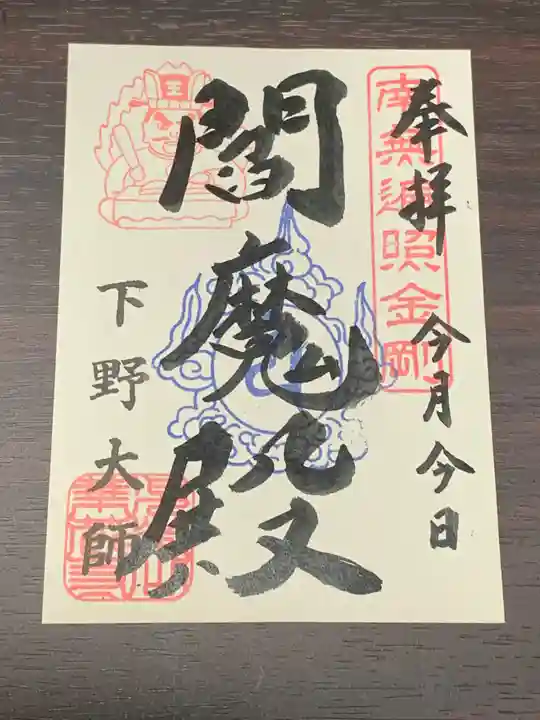 奉拝 今月今日
南無遍照金剛
閻魔殿
王
下野大師